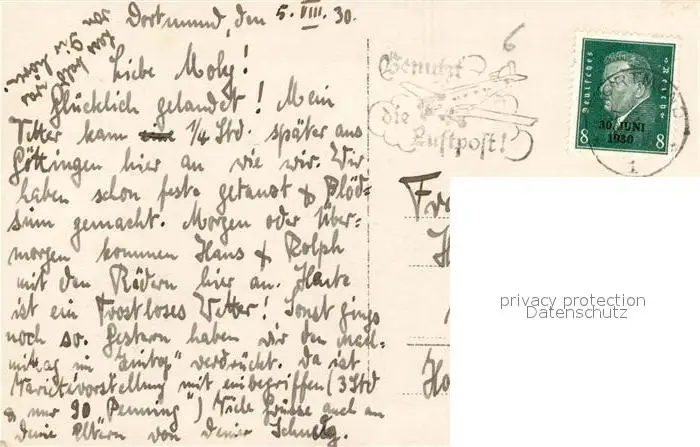 Dortmund, den 5. VIII. 30.
Liebe Moly!
Glücklich gelandet! Mein
Vetter kam 1/4 Std. später aus
Göttingen hier an wie wir. Wir
haben schon feste getanzt & Blöd-
sinn gemacht. Morgen oder über-
morgen kommen Hans & Rolph
mit den Rädern hier an. Heute
ist ein Trostloses Wetter! Sonst gings
noch so. Gestern haben wir den nach-
mittag im verdrückt. Da ist
Varietévorstellung mit einbegriffen (3 Std
nur 90 Pfennig") Viele Grüsse auch an
Deine Eltern von Deiner
6
Benutzt
die
Luftpost!
Deutsches Reich
30. JUNI
1930
8 8
DORTMUND
1
Fr
H
Ho
privacy protection
Datenschutz